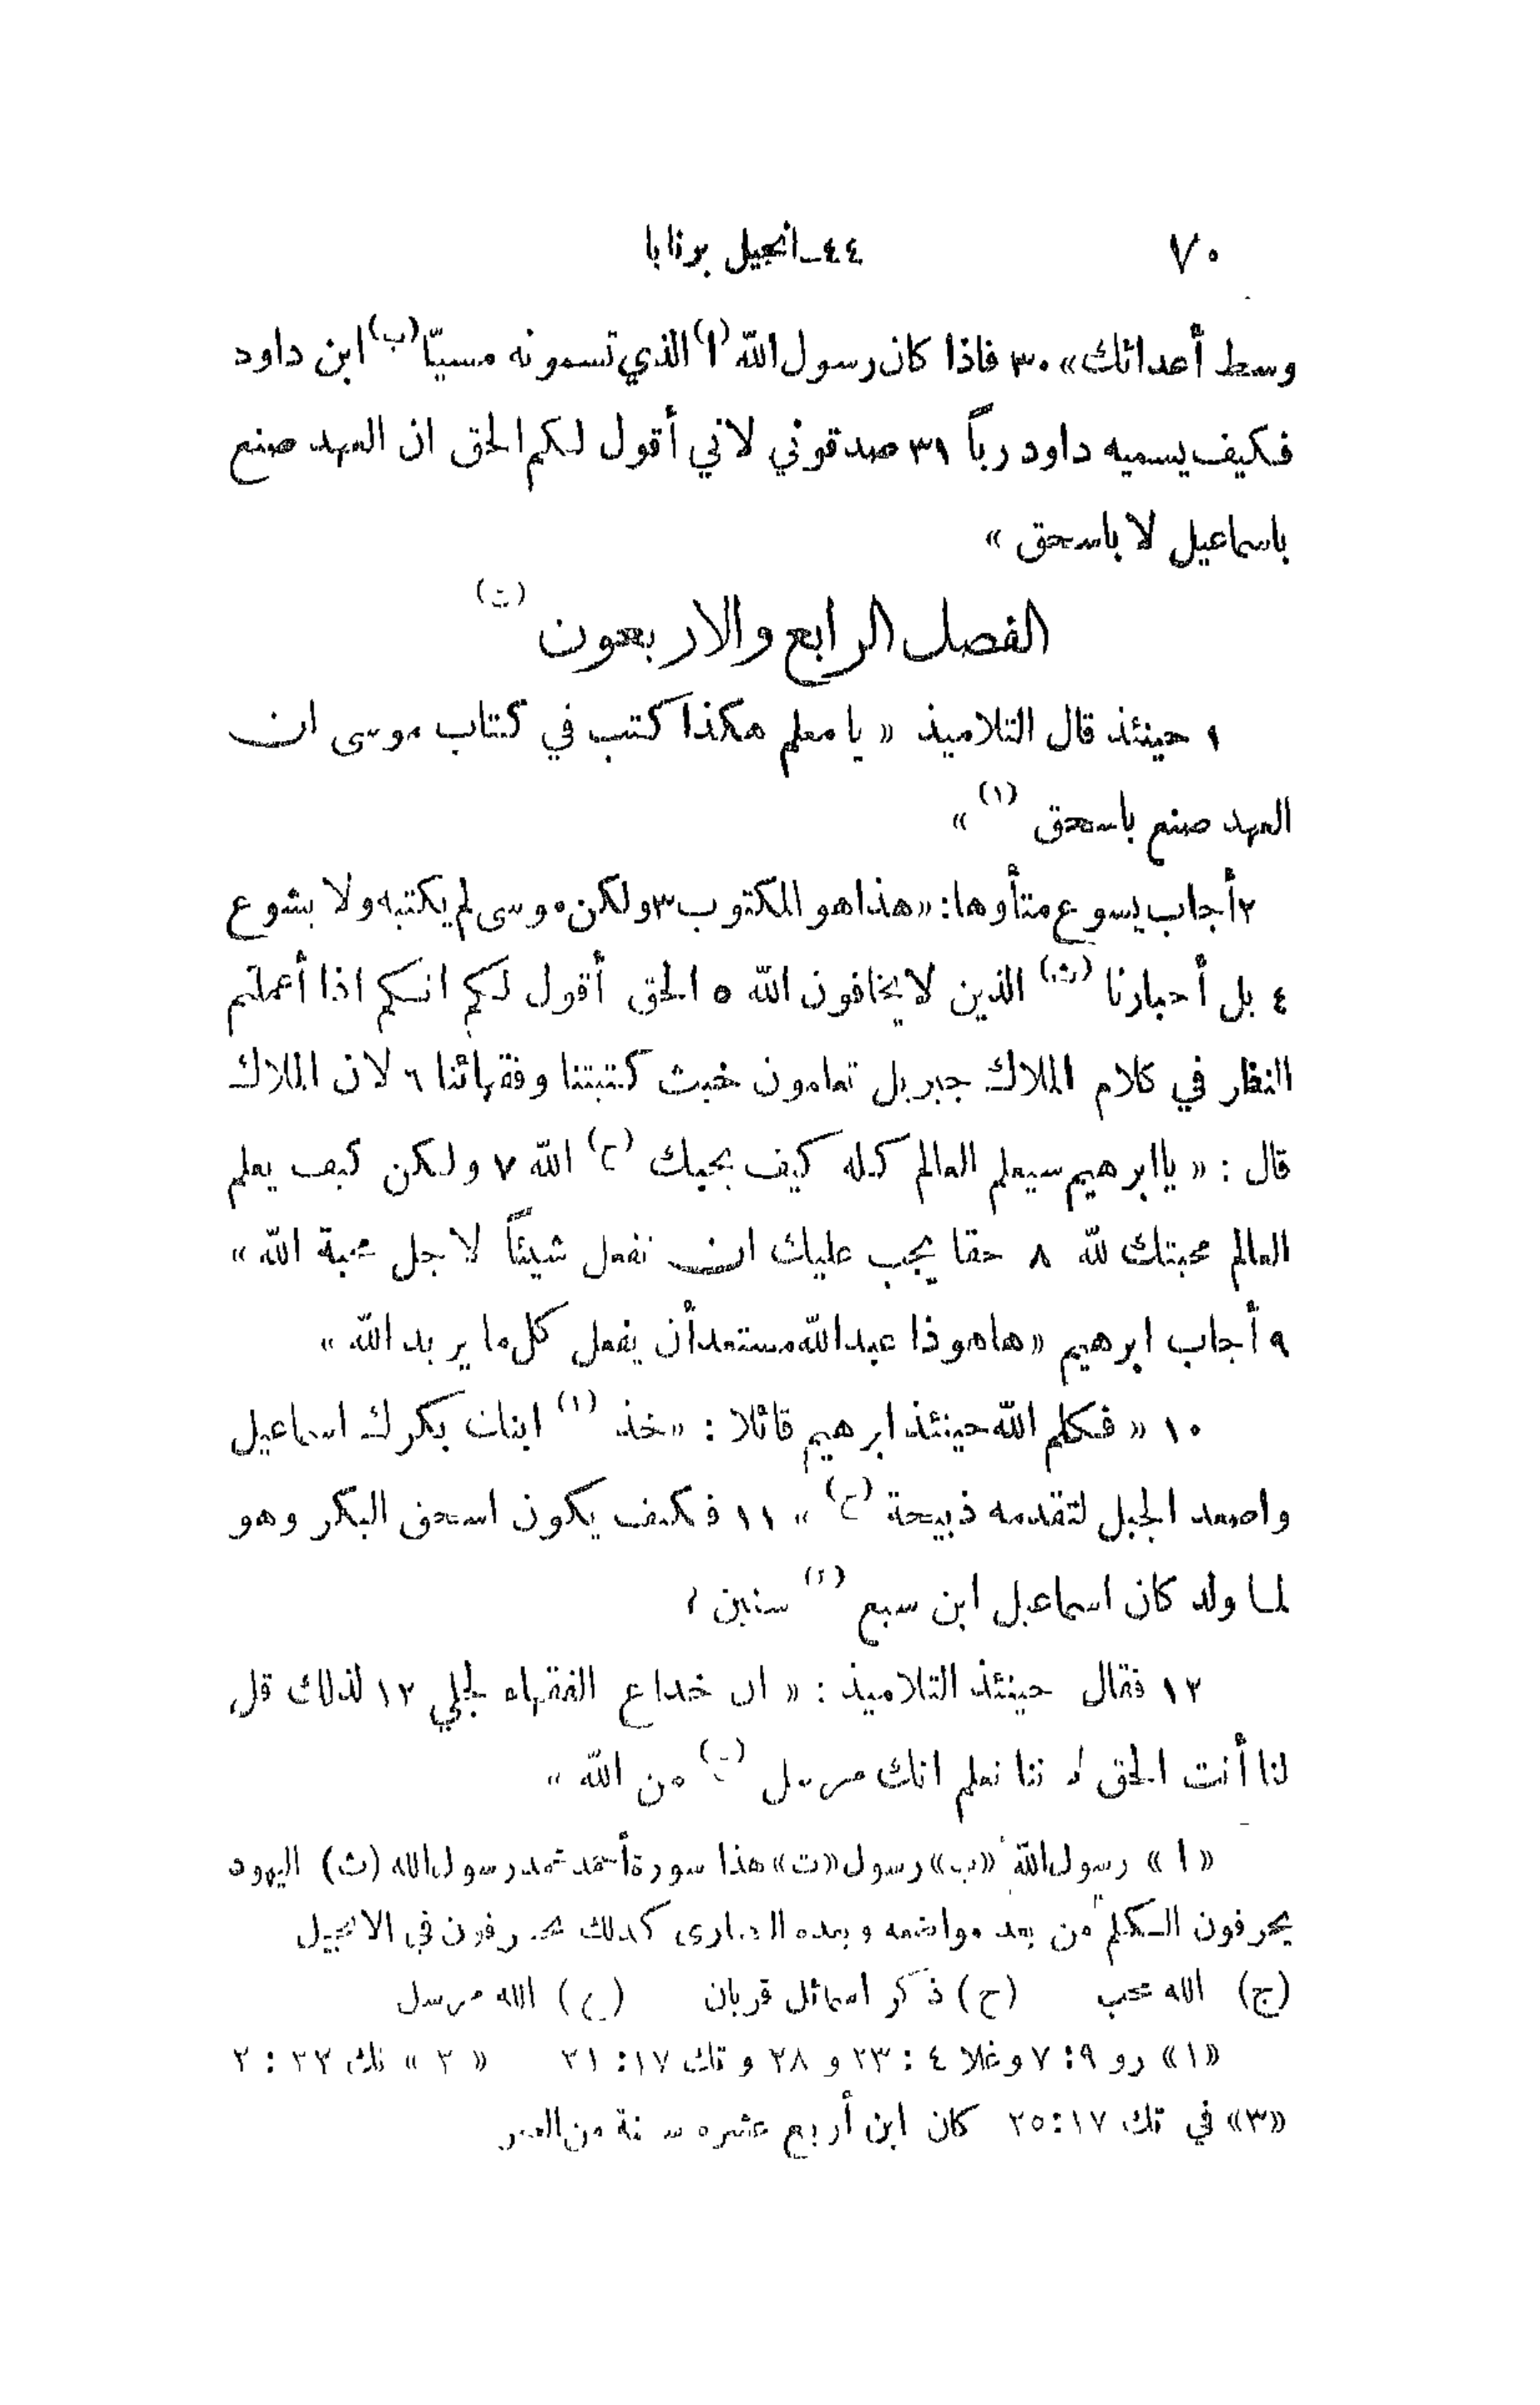 ٧٠
٤٤ـ انجيل برنابا
وسط أعدائك» ٣٠ فاذا كان رسول الله (ا) الذي تسمونه مسيّا (ب) ابن داود
فكيف يسميه داود رباً ٣١ صدقوني لاني أقول لكم الحق ان العهد صنع
باسماعيل لا باسحق »
الفصل الرابع والاربعون (ت)
١ حينئذ قال التلاميذ « يا معلم هكذا كتب في كتاب موسى ان
العهد صنع باسحق (١) »
٢ أجاب يسوع متأوها: «هذا هو المكتوب ٣ ولكن موسى لم يكتبه ولا يشوع
٤ بل أحبارنا (ث) الذين لا يخافون الله ٥ الحق أقول لكم انكم اذا أعملتم
النظر في كلام الملاك جبريل تعلمون خبث كتبتنا وفقهائنا ٦ لان الملاك
قال : « يا ابرهيم سيعلم العالم كله كيف يحبك (ج) الله ٧ ولكن كيف يعلم
العالم محبتك لله ٨ حقا يجب عليك ان تفعل شيئاً لاجل محبة الله »
٩ أجاب ابرهيم «ها هو ذا عبد الله مستعد أن يفعل كل ما يريد الله »
١٠ « فكلم الله حينئذ ابرهيم قائلا : «خذ (١) ابنك بكرك اسماعيل
واصعد الجبل لتقدمه ذبيحة (ح) » ١١ فكيف يكون اسحق البكر وهو
لما ولد كان اسماعيل ابن سبع سنين ؟
١٢ فقال حينئذ التلاميذ : « ان خداع الفقهاء لجلي ١٣ لذلك قل
لنا أنت الحق لاننا نعلم انك مرسل من الله »
« ا » رسول الله «ب» رسول «ت» هذا سورة أحمد محمد رسول الله (ث) اليهود
يحرفون الكلم من بعد مواضعه وبعده النصارى كذلك يحرفون في الانجيل
(ج) الله محب (ح) ذكر اسمائل قربان (خ) الله مرسل
«١» رو ٩: ٧ وغلا ٤ : ٢٣ و ٢٨ و تك ١٧: ٢١ « ٢ » تك ٢٢ : ٢
«٣» في تك ١٧: ٢٥ كان ابن أربع عشره سنة من العمر